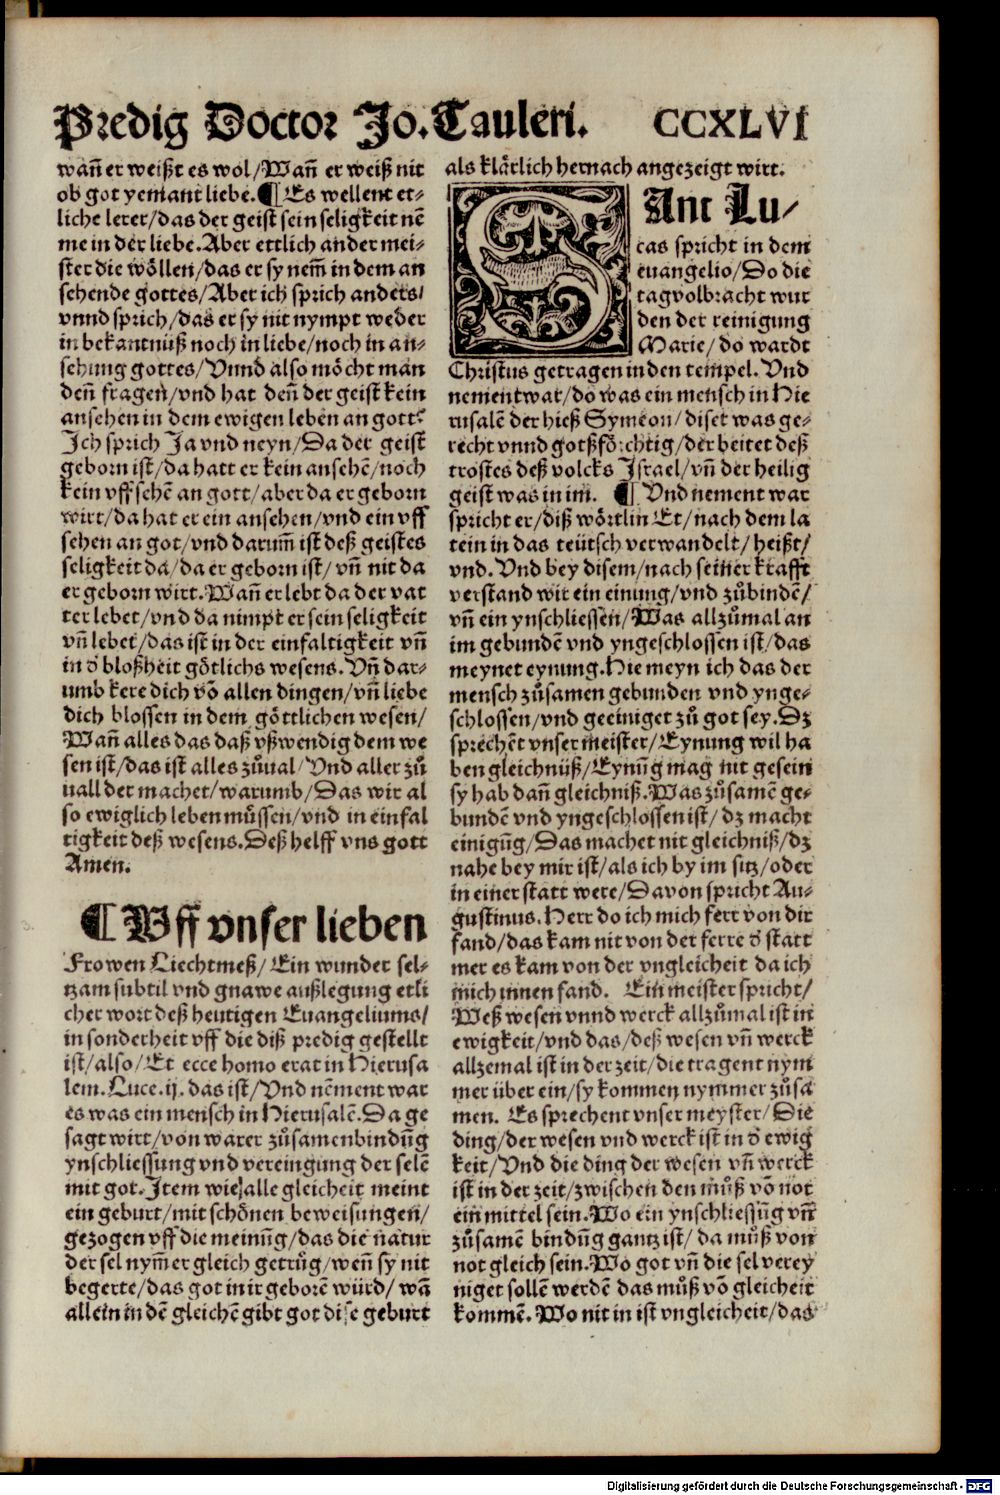 Predig Doctor Jo. Tauleri. CCXLVI
wañ er weißt es wol/Wañ er weiß nit
ob got yemant liebe. ¶ Es wellent et-
liche lerer/das der geist sein seligkeit nē
me in der liebe. Aber ettlich ander mei-
ster die wöllen/das er sy nem̄ in dem an
sehende gottes/Aber ich sprich anders/
vnnd sprich/das er sy nit nympt weder
in bekantnüß noch in liebe/noch in an-
sehung gottes/Vnnd also möcht man
deñ fragen/vnd hat deñ der geist kein
ansehen in dem ewigen leben an gott?
Ich sprich Ja vnd neyn/Da der geist
geborn ist/da hatt er kein ansehē/noch
kein vff sehē an gott/aber da er geborn
wirt/da hat er ein ansehen/vnd ein vff
sehen an got/vnd darum̄ ist deß geistes
seligkeit da/da er geborn ist/vñ nit da
er geborn wirt. Wañ er lebt da der vat
ter lebet/vnd da nimpt er sein seligkeit
vñ lebet/das ist in der einfaltigkeit vñ
in d̄ bloßheit götlichs wesens. Vñ dar-
umb kere dich vō allen dingen/vñ liebe
dich blossen in dem göttlichen wesen/
Wañ alles das daß vßwendig dem we
sen ist/das ist alles zůual/Vnd aller zů
uall der machet/warumb/Das wir al
so ewiglich leben müssen/vnd in einfal
tigkeit deß wesens. Deß helff vns gott
Amen.
¶ Vff vnser lieben
Frowen Liechtmeß/Ein wunder sel-
tzam subtil vnd gnawe außlegung etli
cher wort deß heutigen Euangeliums/
in sonderheit vff die diß predig gestellt
ist/also/Et ecce homo erat in Hierusa
lem. Luce. ij. das ist/Vnd nēment war
es was ein mensch in Hierusalē. Da ge
sagt wirt/von warer zůsamenbindūg
ynschliessung vnd vereingung der selē
mit got. Item wie alle gleicheit meint
ein geburt/mit schönen beweisungen/
gezogen vff die meinūg/das die natur
der sel nym̄er gleich getrůg/weñ sy nit
begerte/das got in ir geborē würd/wā
allein in dē gleichē gibt got dise geburt
als klärlich hernach angezeigt wirt.
SAnt Lu/
cas spricht in dem
euangelio/Do die
tag volbracht wur
den der reinigung
Marie/do wardt
Christus getragen in den tempel. Vnd
nement war/do was ein mensch in Hie
rusalē der hieß Symeon/diser was ge-
recht vnnd gotßförchtig/der beitet deß
trostes deß volcks Israel/vñ der heilig
geist was in im. ¶ Vnd nement war
spricht er/diß wörtlin Et/nach dem la
tein in das teütsch verwandelt/heißt/
vnd. Vnd bey disem/nach seiner krafft
verstand wir ein einung/vnd zůbindē/
vñ ein ynschliessen/Was allzůmal an
im gebundē vnd yngeschlossen ist/das
meynet eynung. Hie meyn ich das der
mensch zůsamen gebunden vnd ynge-
schlossen/vnd geeiniget zů got sey. Dz
sprechēt vnser meister/Eynung wil ha
ben gleichnüß/Eynūg mag nit gesein
sy hab dañ gleichniß. Was zůsamē ge-
bundē vnd yngeschlossen ist/dz macht
einigūg/Das machet nit gleichniß/dz
nahe bey mir ist/als ich by im sitz/oder
in einer statt were/Davon spricht Au-
gustinus. Herr do ich mich ferr von dir
fand/das kam nit von der ferre d̄ statt
mer es kam von der vngleicheit da ich
mich innen fand. Ein meister spricht/
Weß wesen vnnd werck allzůmal ist in
ewigkeit/vnd das/deß wesen vñ werck
allzemal ist in der zeit/die tragent nym
mer über ein/sy kommen nymmer zůsa
men. Es sprechent vnser meyster/Die
ding/der wesen vnd werck ist in d̄ ewig
keit/Vnd die ding der wesen vñ werck
ist in der zeit/zwischen den můß vō not
ein mittel sein. Wo ein ynschliessūg vñ
zůsamē bindūg gantz ist/da můß von
not gleich sein. Wo got vñ die sel verey
niget sollē werdē das můß vō gleicheit
kommē. Wo nit in ist vngleicheit/das
Digitalisierung gefördert durch die Deutsche Forschungsgemeinschaft - DFG